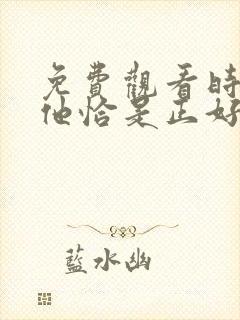 免費觀看時
他恰是正好
藍水幽